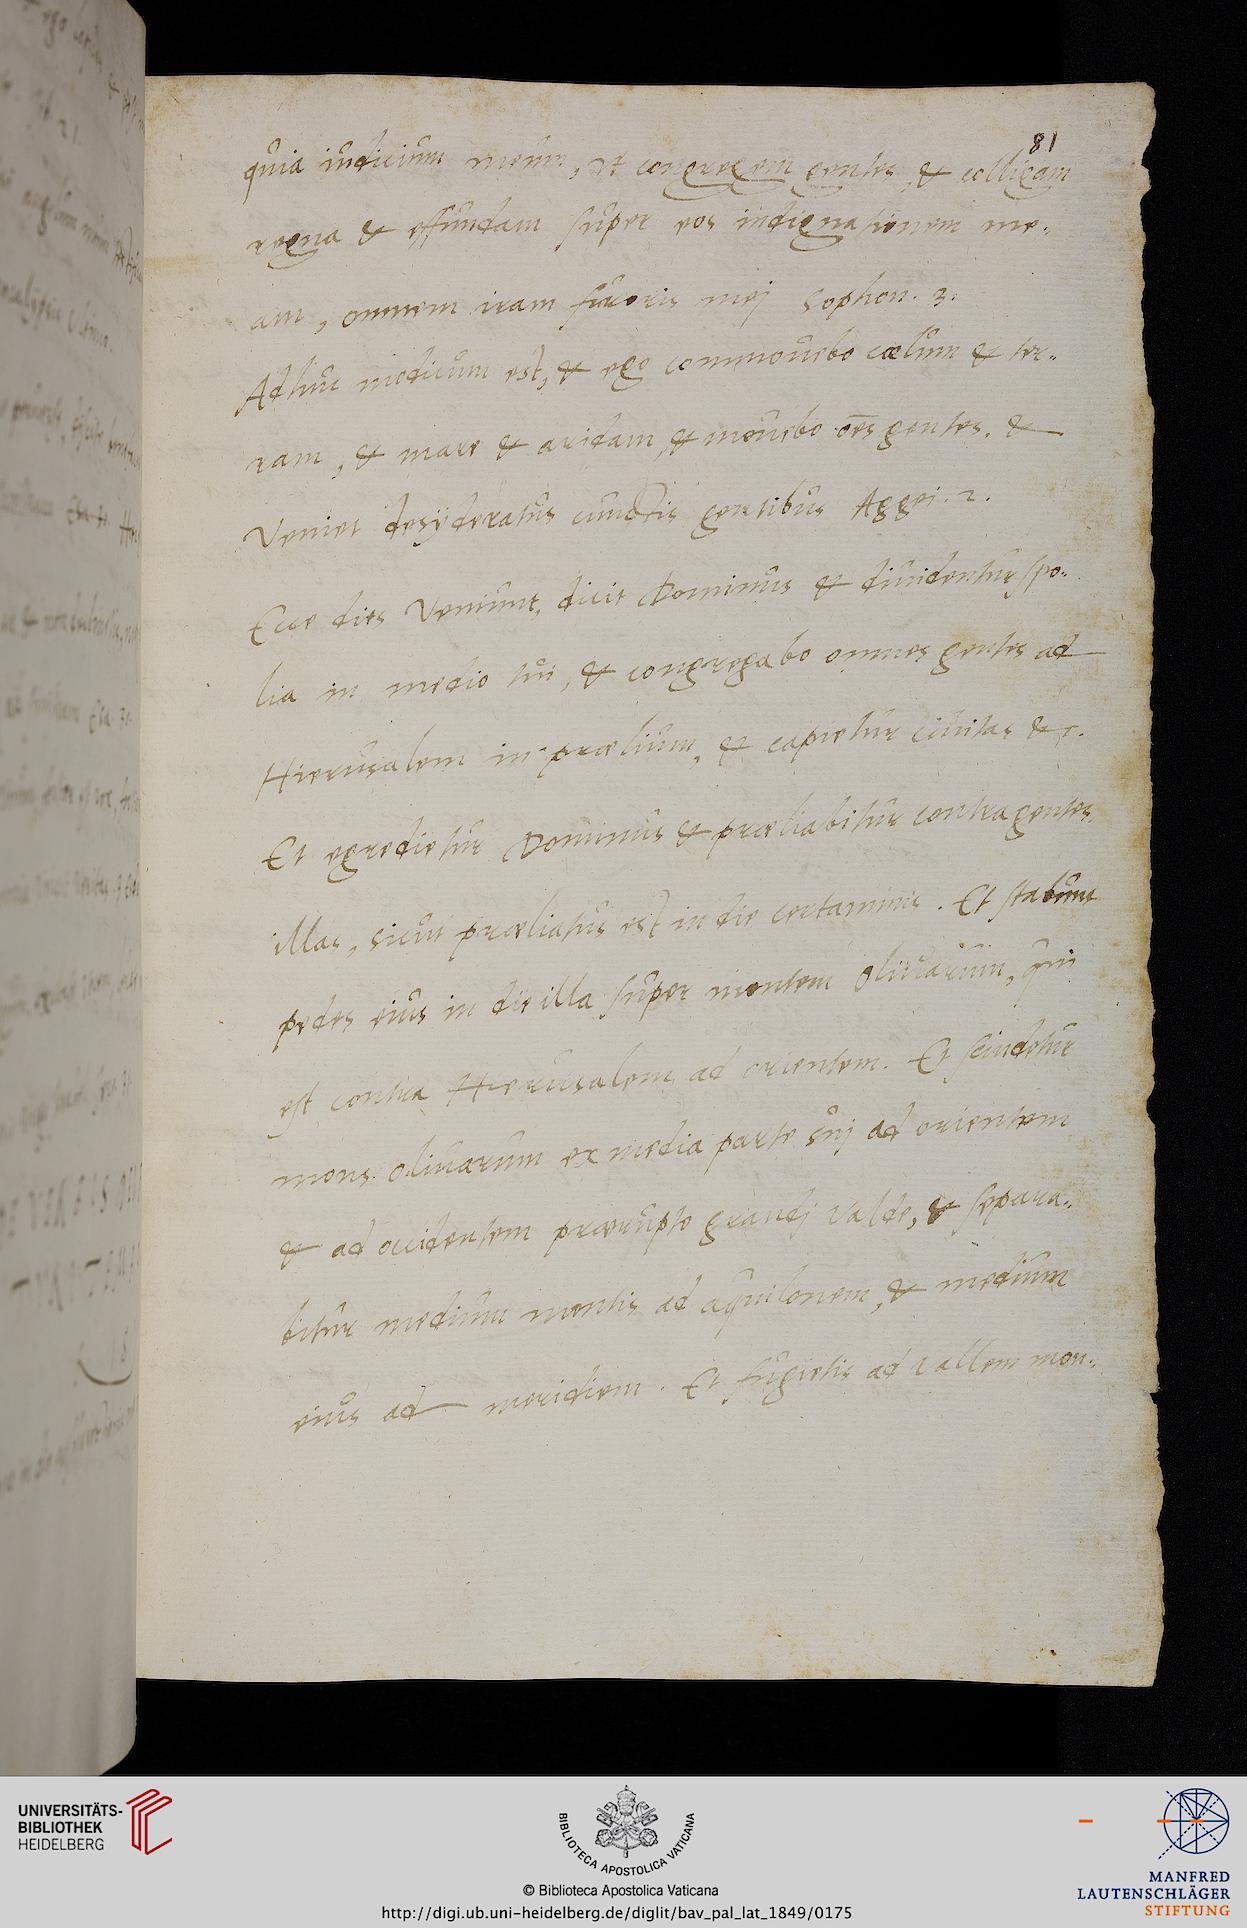 81
quia iudicium meum, ut congregem gentes, & colligam
regna & effundam super eos indignationem me-
am, omnem iram furoris mej Sophon. 3.
Adhuc modicum est, & ego commouebo cælum & ter-
ram, & mare & aridam, & mouebo oẽs gentes. &
Veniet desyderatus cunctis gentibus Aggei. 2.
Ecce dies Veniunt, dicit Dominus & diuidentur spo-
lia in medio tui, & congregabo omnes gentes ad
Hierusalem in prælium, & capietur ciuitas &c.
Et egredietur Dominus & præliabitur contra gentes
illas, sicut præliatus est in die certaminis. Et stabunt
pedes eius in die illa super montem Oliuarum, qui
est contra Hierusalem ad orientem. Et scindetur
mons oliuarum ex media parte suj ad orientem
& ad occidentem prærupto grandj valde, & separa-
bitur medium montis ad aquilonem, & medium
eius ad meridiem. Et fugietis ad vallem mon-
UNIVERSITÄTS-
BIBLIOTHEK
HEIDELBERG
BIBLIOTECA APOSTOLICA VATICANA
© Biblioteca Apostolica Vaticana
http://digi.ub.uni-heidelberg.de/diglit/bav_pal_lat_1849/0175
MANFRED
LAUTENSCHLÄGER
STIFTUNG